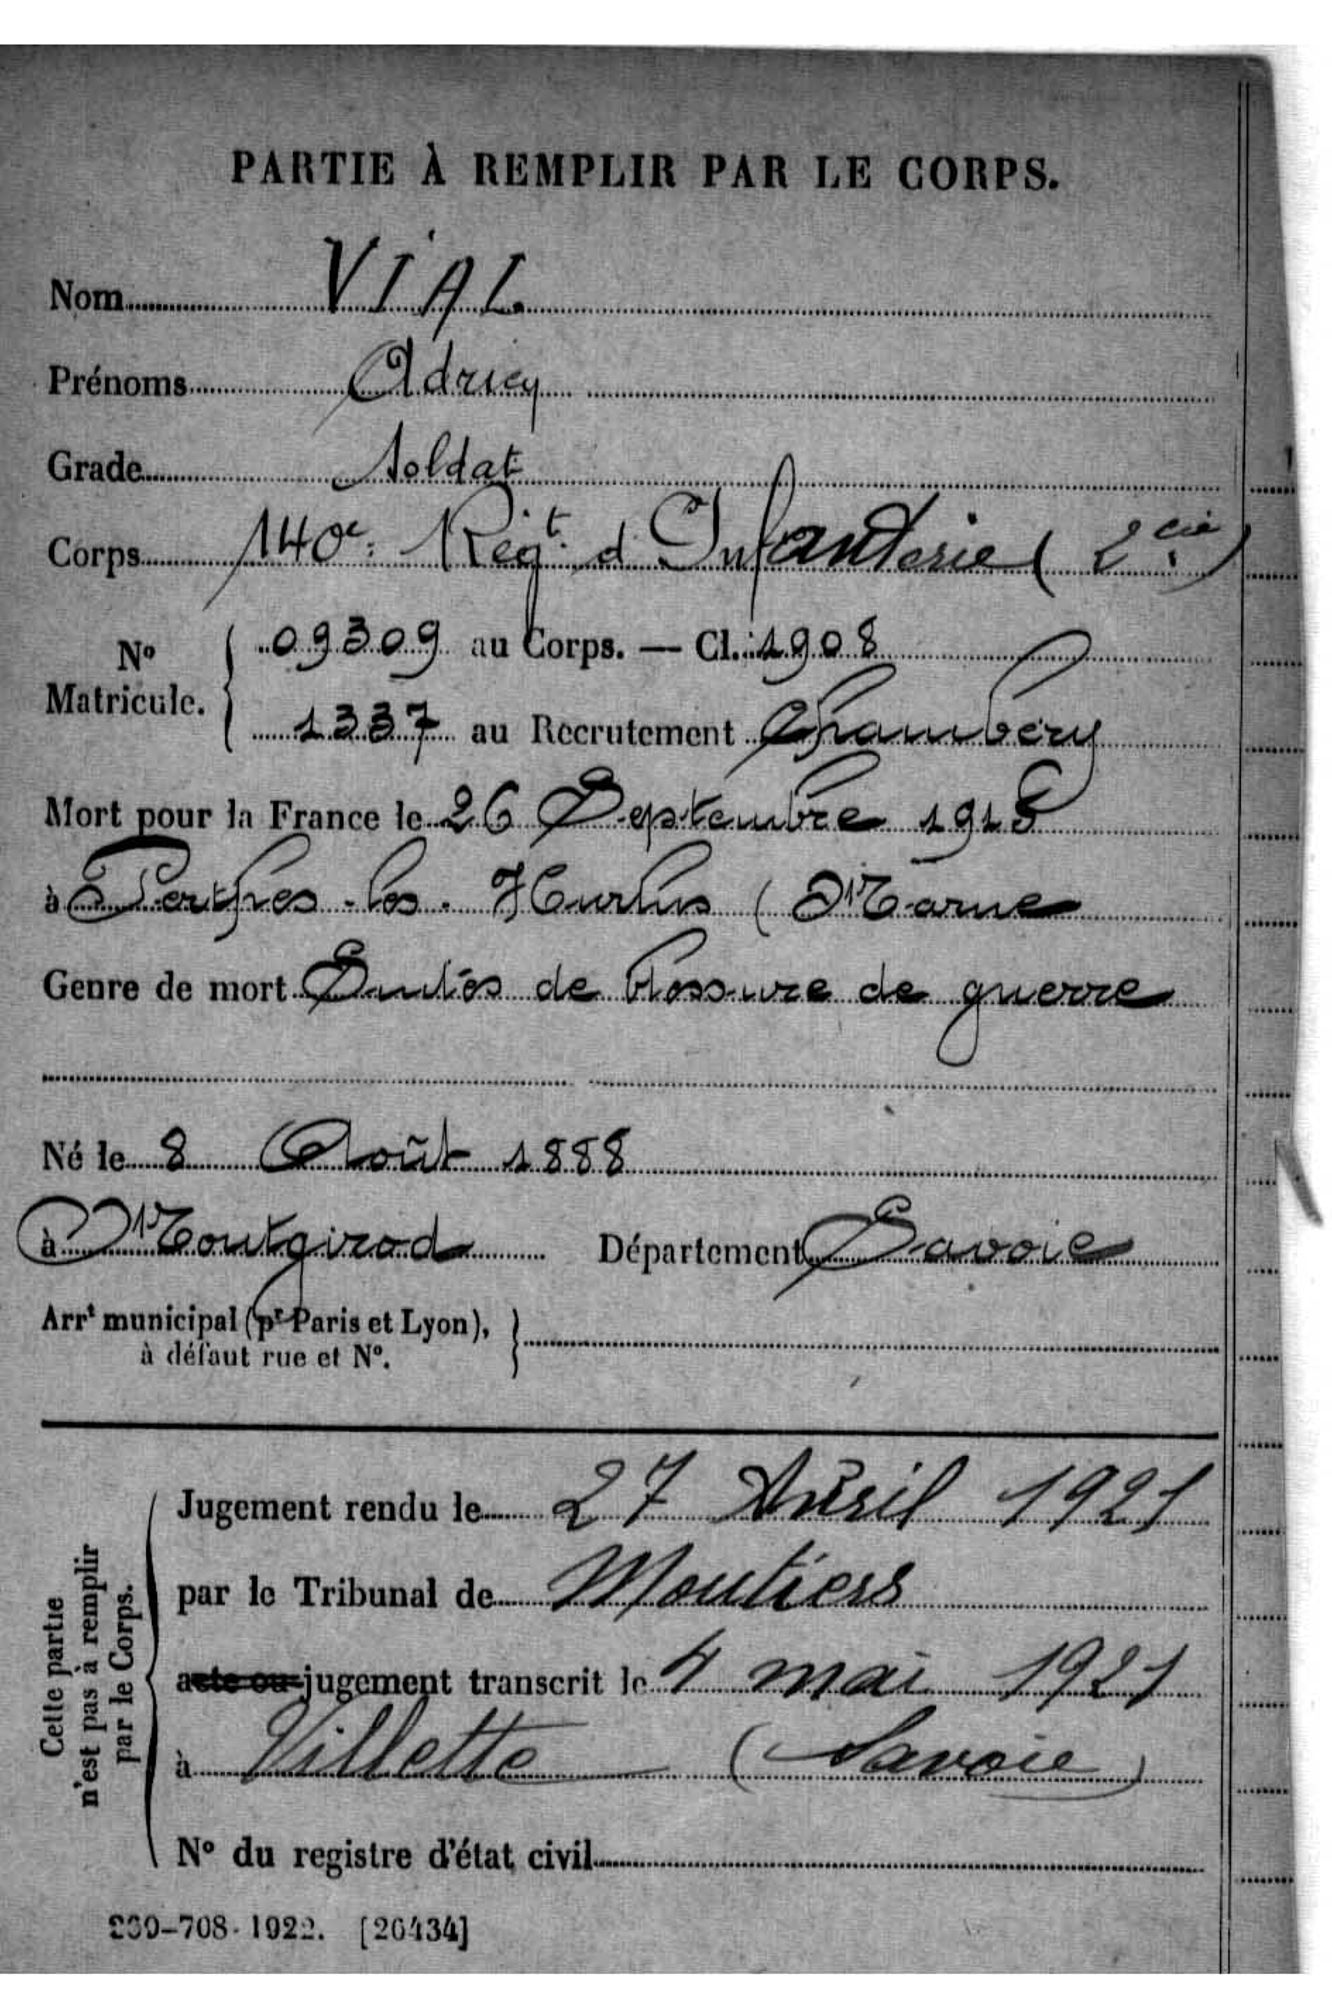 PARTIE À REMPLIR PAR LE CORPS.
Nom VIAL
Prénoms Adrien
Grade Soldat
Corps 140e Régt d'Infanterie (2e cie)
No Matricule. 09309 au Corps. — Cl. 1908
1337 au Recrutement Chambéry
Mort pour la France le 26 Septembre 1915
à Perthes-les-Hurlus (Marne
Genre de mort Suites de blessure de guerre
Né le 8 Août 1888
à Montgirod Département Savoie
Arrt municipal (pr Paris et Lyon),
à défaut rue et No.
Cette partie
n'est pas à remplir
par le Corps.
Jugement rendu le 27 Avril 1921
par le Tribunal de Moutiers
acte ou jugement transcrit le 4 mai 1921
à Villette (Savoie)
No du registre d'état civil
-708-1922. [26434]